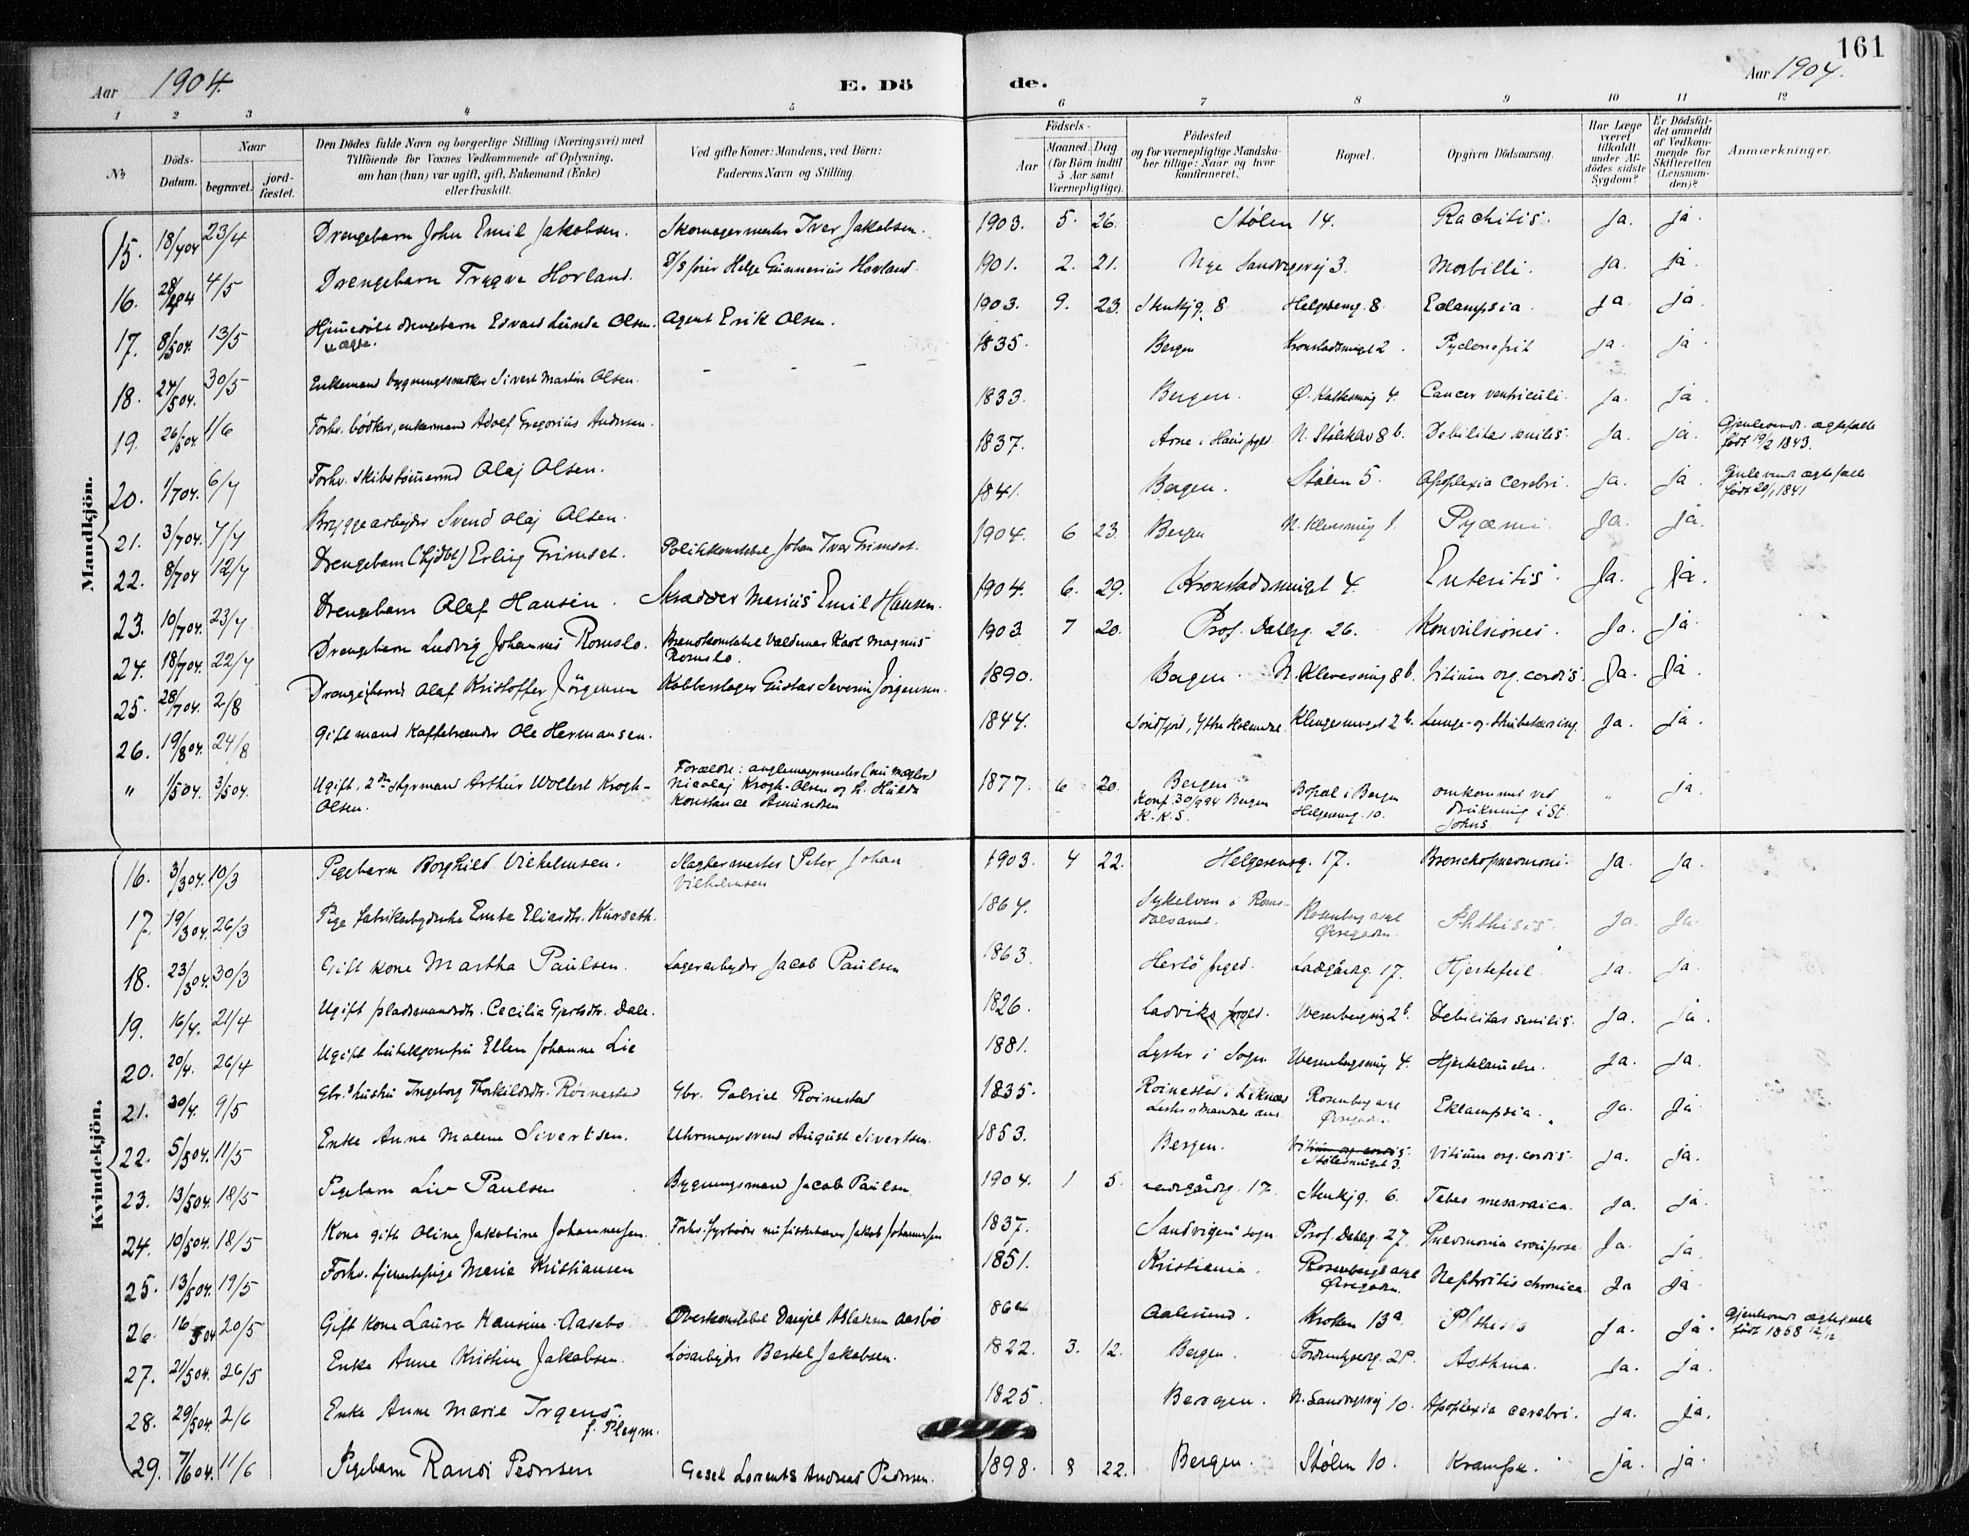 161
Aar 1904. E. Dö de. Aar 1904.
1 2 3 4 5 6 7 8 9 10 11 12
№ Döds-Datum. Naar begravet. jord-fæstet. Den Dödes fulde Navn og borgerlige Stilling (Næringsvei) med Tilföiende for Voxnes Vedkommende af Oplysning, om han (hun) var ugift, gift, Enkemand (Enke) eller fraskilt. Ved gifte Koner: Mandens, ved Börn: Faderens Navn og Stilling. Födsels- Aar Maaned. Dag (for Börn indtil 5 Aar samt Værnepligtige). Födested og for værnepligtige Mandska-ber tillige: Naar og hvor konfirmeret. Bopæl. Opgiven Dödsaarsag. Har Læge været tilkaldt under Af-dödes sidste Sygdom? Er Dödsfal-det anmeldt af Vedkom-mende for Skifteretten (Lensman-den)? Anmærkninger.
Mandkjön.
15. 18/4 04 23/4 Drengebarn John Emil Jakobsen. Skomagermester Iver Jakobsen. 1903. 5. 26. Stølen 14. Rachitis. Ja. ja
16. 28/4 04 4/5 Drengebarn Trygve Hovland. D/S fører Helge Gunnerius Hovland 1901. 2. 21. Nye Sandvigsvej 3. Morbilli. ja. ja.
17. 8/5 04. 13/5 Hjemdøbt drengebarn Edvard Lunde Olsen. uægte. Agent Erik Olsen. 1903. 9. 23. Stenkjg. 8 Helgeseng. 8. Eclampsia. ja. ja
18. 24/5 04. 30/5 Enkemand bygningssnedker Sivert Martin Olsen. 1835. Bergen 2. ja. ja.
19. 26/5 04. 1/6 Forhv. bødker, enkemand Adolf Gregorius Andersen. 1833. Bergen. Ø. 4. Cancer ventriculi. ja. ja.
20. 1/7 04. 6/7 Forhv. skibstømmermd Olaj Olsen. 1837. Arne i Haus pgd. N. Stølekler 8 b. Debilitas senilis. ja. ja. Gjenlevend. ægtefælle født 19/2 1843.
21. 3/7 04. 7/7 Bryggearbejder Svend Olaj Olsen. 1841. Bergen. Stølen 5. Apoplexia cerebri. ja. ja. Gjenlevend ægtefælle født 20/1 1841
22. 8/7 04 12/7 Drengebarn (hjdbt) Erling Grimset. Politikonstabel Johan Ivar Grimset. 1904. 6 23. Bergen Pyæmi. Ja. ja.
23. 10/7 04. 23/7 Drengebarn Olaf Hansen. Skrædder Marius Emil Hansen. 1904. 6. 29. Kronstadsmuget 4. Enteritis. Ja. ja.
24. 18/7 04. 22/7 Drengebarn Ludvig Johannes Romslo. Brandkonstabel Valdemar Karl Magnus Romslo. 1903. 7 20. Prof. Dahlsg. 26. Konvulsiones. Ja. ja.
25. 28/7 04. 2/8 Drengebarn Olaf Kristoffer Jörgensen Kobberslager Gustav Severin Jörgensen. 1890. Bergen. N. Klevesmug 8 b. Vitium org. cordis. Ja. Ja.
26. 19/8 04. 24/8 Gift mand Kaffebrænder Ole Hermansen. 1844. 2 b. Lunge- og Strubetæring. Ja. ja.
" 1/5 04. 3/5 04. Ugift. 2den styrmand Arthur Wollert Krogh-Olsen. Forældre: Nicolaj Krogh-Olsen og h. Hulda Konstance Amundsen 1877. 6 20. Bergen Konf. 30/9 94 Bergen K.K.S. Bopæl i Bergen Helgeseng. 10. omkommet ved drukning i St. Johns " ja.
Kvindekjön.
16. 3/3 04. 10/3 Pigebarn Borghild Vilhelmsen. Slagtermester Peter Johan Vilhelmsen 1903. 4 22. Helgeseng. 17. Bronchopneumoni. ja. Ja.
17. 19/3 04. 26/3 Pige fabrikarbejderske Emte Eliasdtr. Kurseth. 1864. Sykelven i Roms-dalsamt. Rosenberg asyl Øvregaden. Phthisis. Ja. Ja.
18. 23/3 04. 30/3 Gift kone Martha Paulsen. Lagerarbejder Jacob Paulsen 1863. Herlø prgd. Ladgårdsg. 17. Hjertefeil. ja. ja.
19. 16/4. 21/4 Ugift pladsmandsdtr. Cecilia Gjertsdtr. Dale. 1826. Ladviks prgd. Wesenbergsmug 2 b. Debilitas senilis. Ja. ja.
20. 20/4. 26/4 Ugift butikjomfru Ellen Johanne Lie 1881. Lyster i Sogn Wesenbergsmug 4. Hjertelamelse. Ja. Ja.
21. 30/4. 9/5 Gbr.s hustru Ingeborg Thorkildsdtr. Røinestad Gbr. Gabriel Røinestad 1835. Roinestad i Liknæs Lister & Mandals amt. Rosenberg asyl Øvregaden. Eklampsia. Ja. Ja.
22. 5/5 04. 11/5 Enke Anne Malene Sivertsen. Uhrmagersvend August Sivertsen. 1853. Bergen. Vitium org. cordis. Stølesmuget 3. Vitium org. cordis. ja. ja.
23. 13/5 04. 18/5 Pigebarn Liv Paulsen Bygningsmand Jacob Paulsen 1904. 1 5. Ladegårdsg. 17. Stenkjg. 6. Tabes mesaraica. Ja. ja.
24. 10/5 04. 18/5 Kone gift Oline Jakobine Johannessen. Forhv. fyrbøder nu fiskehandler Jakob Johannessen 1837. Sandvigens sogn Prof. Dahlsg. 27. Pneumonia crouposa Ja. ja.
25. 13/5 04. 19/5 Forhv. tjenestepige Maria Kristiansen 1851. Kristiania. Rosenbergs asyl Øvregaden. Nephritis chronica. Ja ja.
26. 16/5 04 20/5 Gift kone Laura Hansine Aasebø Overkonstabel Danjel Aslaksen Aasbø 1864 Aalesund. Kroken 13a. Phthisis Ja. Ja. Gjenlevend ægtefælle født 1858 12/12
27. 21/5 04. 26/5 Enke Anne Kristine Jakobsen. Løsarbejder Bertel Jakobsen. 1822. 3. 12. Bergen. Asthma. Ja. ja.
28. 29/5 04. 2/6 Enke Anne Marie Irgens. f. Pleym. 1825. Bergen. N. Sandvigsvej 10. Apoplexia cerebri. Ja. Ja.
29. 7/6 04. 11/6 Pigebarn Randi Pedersen Gesel Lorents Andreas Pedersen. 1898. 8 22. Bergen. Stølen 10. Krampe. Ja. Ja.